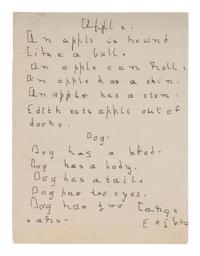 Apple.
An apple is round
like a ball.
An apple can roll.
An apple has a skin.
An apple has a stem.
Edith eats apple out of
doors.
Dog.
Dog has a head.
Dog has a body.
Dog has a tail.
Dog has two eyes.
Dog has two large
ears.
Edith